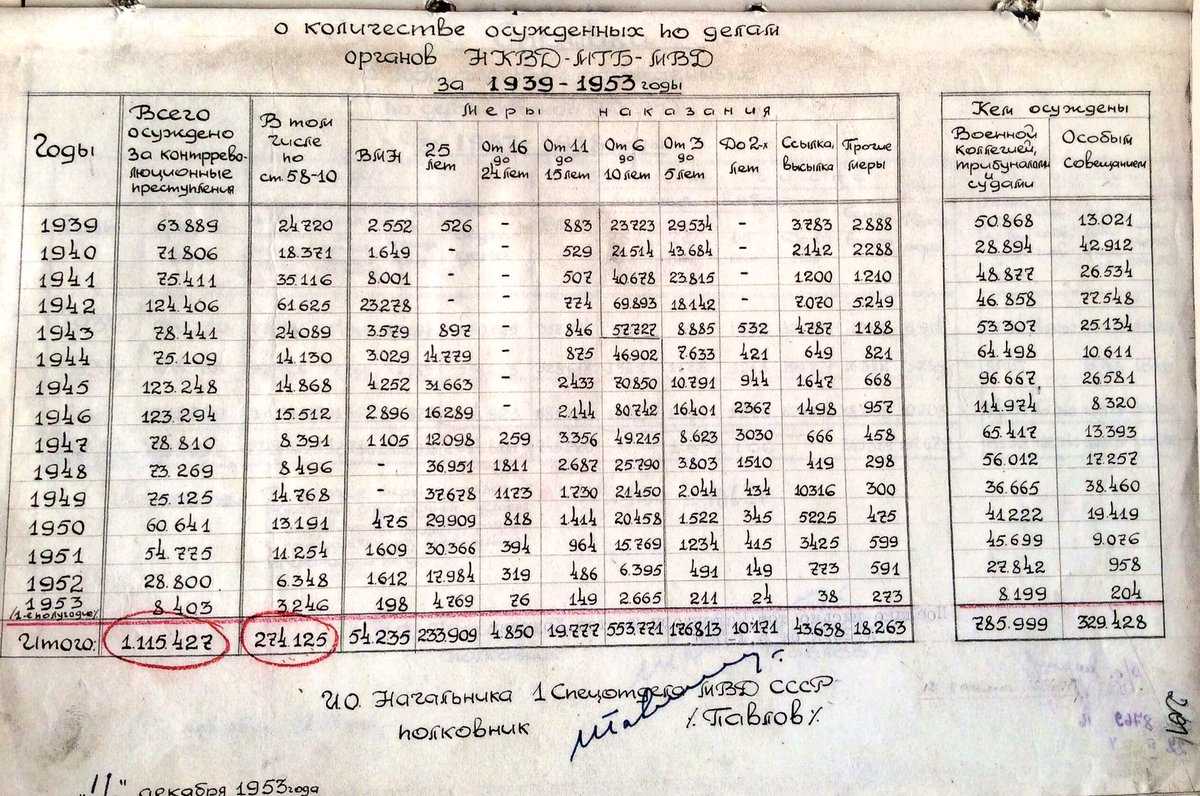 о количестве осужденных по делам
органов НКВД-МГБ-МВД
за 1939-1953 годы
Годы Всего осуждено за контрреволюционные преступления В том числе по ст. 58-10 Меры наказания Кем осуждены
ВМН 25 лет От 16 до 24 лет От 11 до 15 лет От 6 до 10 лет От 3 до 5 лет До 2-х лет Ссылка, высылка Прочие меры Военной коллегией, трибуналами и судами Особым совещанием
1939 63.889 24.720 2.552 526 - 883 23.723 29.534 - 3783 2.888 50.868 13.021
1940 71.806 18.371 1.649 - - 529 21.514 43.684 - 2.142 2288 28.894 42.912
1941 75.411 35.116 8.001 - - 507 40.678 23.815 - 1200 1.210 48.877 26.534
1942 124.406 61.625 23.278 - - 774 69.893 18.142 - 7070 5.249 46.858 77.548
1943 78.441 24.089 3.579 897 - 846 57.727 8.885 532 4787 1188 53.307 25.134
1944 75.109 14.130 3.029 14.779 - 875 46902 7.633 421 649 821 64.498 10.611
1945 123.248 14.868 4.252 31.663 - 2433 70.850 10.791 944 1647 668 96.667 26.581
1946 123.294 15.512 2.896 16.289 - 2.144 80.742 16.401 2367 1498 957 114.974 8.320
1947 78.810 8.391 1.105 12.098 259 3.356 49.215 8.623 3030 666 458 65.417 13.393
1948 73.269 8.496 - 36.951 1811 2.687 25.790 3.803 1510 419 298 56.012 17.257
1949 75.125 14.768 - 37.678 1173 1.730 21.450 2.044 434 10316 300 36.665 38.460
1950 60.641 13.191 475 29.909 818 1414 20458 1.522 345 5225 475 41.222 19.419
1951 54.775 11.254 1609 30.366 394 964 15.769 1234 415 3425 599 45.699 9.076
1952 28.800 6.348 1.612 17.984 319 486 6.395 491 149 773 591 27.842 958
1953 /1-е полугодие/ 8.403 3.246 198 4.769 76 149 2.665 211 24 38 273 8.199 204
Итого: 1.115.427 274.125 54.235 233.909 4.850 19.777 553.771 176813 10171 43.638 18.263 785.999 329.428
И.О. Начальника 1 Спецотдела МВД СССР
полковник /Павлов/
"11" декабря 1953 года